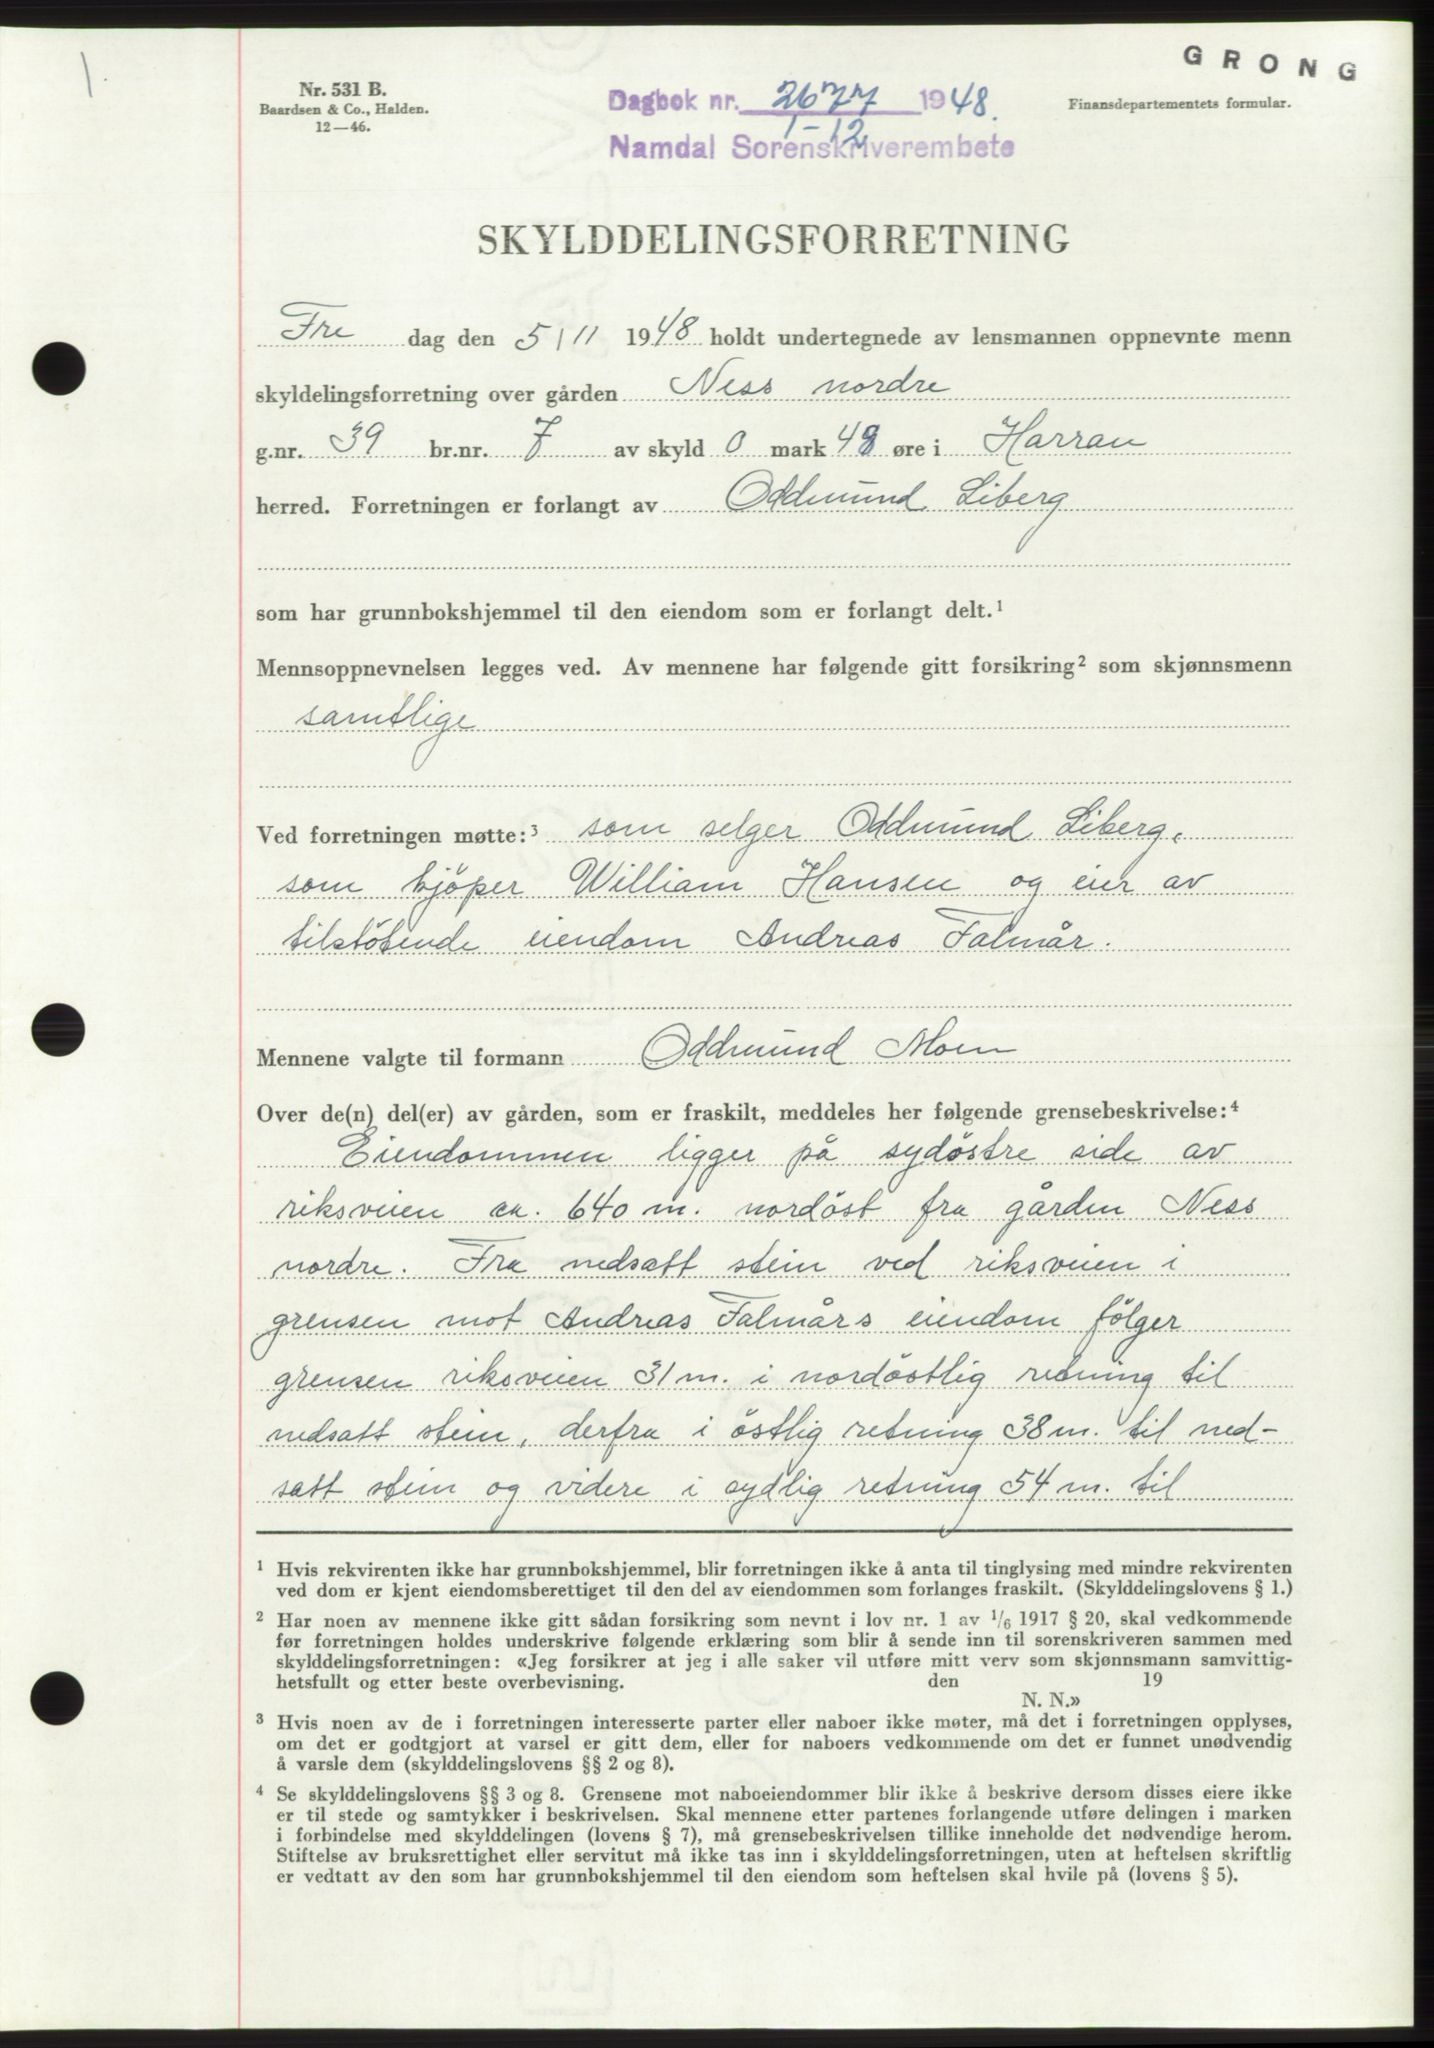 1.
GRONG
Nr. 531 B.
Baardsen & Co., Halden.
12—46.
Dagbok nr. 2677 1948.
1-12
Namdal Sorenskriverembete
Finansdepartementets formular.
SKYLDDELINGSFORRETNING
Fre dag den 5/11 1948 holdt undertegnede av lensmannen oppnevnte menn
skyldelingsforretning over gården Ness nordre
g.nr. 39 br.nr. 7 av skyld 0 mark 48 øre i Harran
herred. Forretningen er forlangt av Oddmund Liberg
som har grunnbokshjemmel til den eiendom som er forlangt delt.¹
Mennsoppnevnelsen legges ved. Av mennene har følgende gitt forsikring² som skjønnsmenn
samtlige
Ved forretningen møtte:³ som selger Oddmund Liberg,
som kjöper William Hansen og eier av
tilstötende eiendom Andreas Falmår.
Mennene valgte til formann Oddmund Moen
Over de(n) del(er) av gården, som er fraskilt, meddeles her følgende grensebeskrivelse:⁴
Eiendommen ligger på sydöstre side av
riksveien ca. 640 m. nordöst fra gården Ness
nordre. Fra nedsatt stein ved riksveien i
grensen mot Andreas Falmårs eiendom fölger
grensen riksveien 31 m. i nordöstlig retning til
nedsatt stein, derfra i östlig retning 38 m. til ned-
satt stein og videre i sydlig retning 54 m. til
¹ Hvis rekvirenten ikke har grunnbokshjemmel, blir forretningen ikke å anta til tinglysing med mindre rekvirenten
ved dom er kjent eiendomsberettiget til den del av eiendommen som forlanges fraskilt. (Skylddelingslovens § 1.)
² Har noen av mennene ikke gitt sådan forsikring som nevnt i lov nr. 1 av 1/6 1917 § 20, skal vedkommende
før forretningen holdes underskrive følgende erklæring som blir å sende inn til sorenskriveren sammen med
skylddelingsforretningen: «Jeg forsikrer at jeg i alle saker vil utføre mitt verv som skjønnsmann samvittig-
hetsfullt og etter beste overbevisning. den 19
N. N.»
³ Hvis noen av de i forretningen interesserte parter eller naboer ikke møter, må det i forretningen opplyses,
om det er godtgjort at varsel er gitt dem, eller for naboers vedkommende om det er funnet unødvendig
å varsle dem (skylddelingslovens §§ 2 og 8).
⁴ Se skylddelingslovens §§ 3 og 8. Grensene mot naboeiendommer blir ikke å beskrive dersom disses eiere ikke
er til stede og samtykker i beskrivelsen. Skal mennene etter partenes forlangende utføre delingen i marken
i forbindelse med skylddelingen (lovens § 7), må grensebeskrivelsen tillike inneholde det nødvendige herom.
Stiftelse av bruksrettighet eller servitut må ikke tas inn i skylddelingsforretningen, uten at heftelsen skriftlig
er vedtatt av den som har grunnbokshjemmel til den eiendom som heftelsen skal hvile på (lovens § 5).